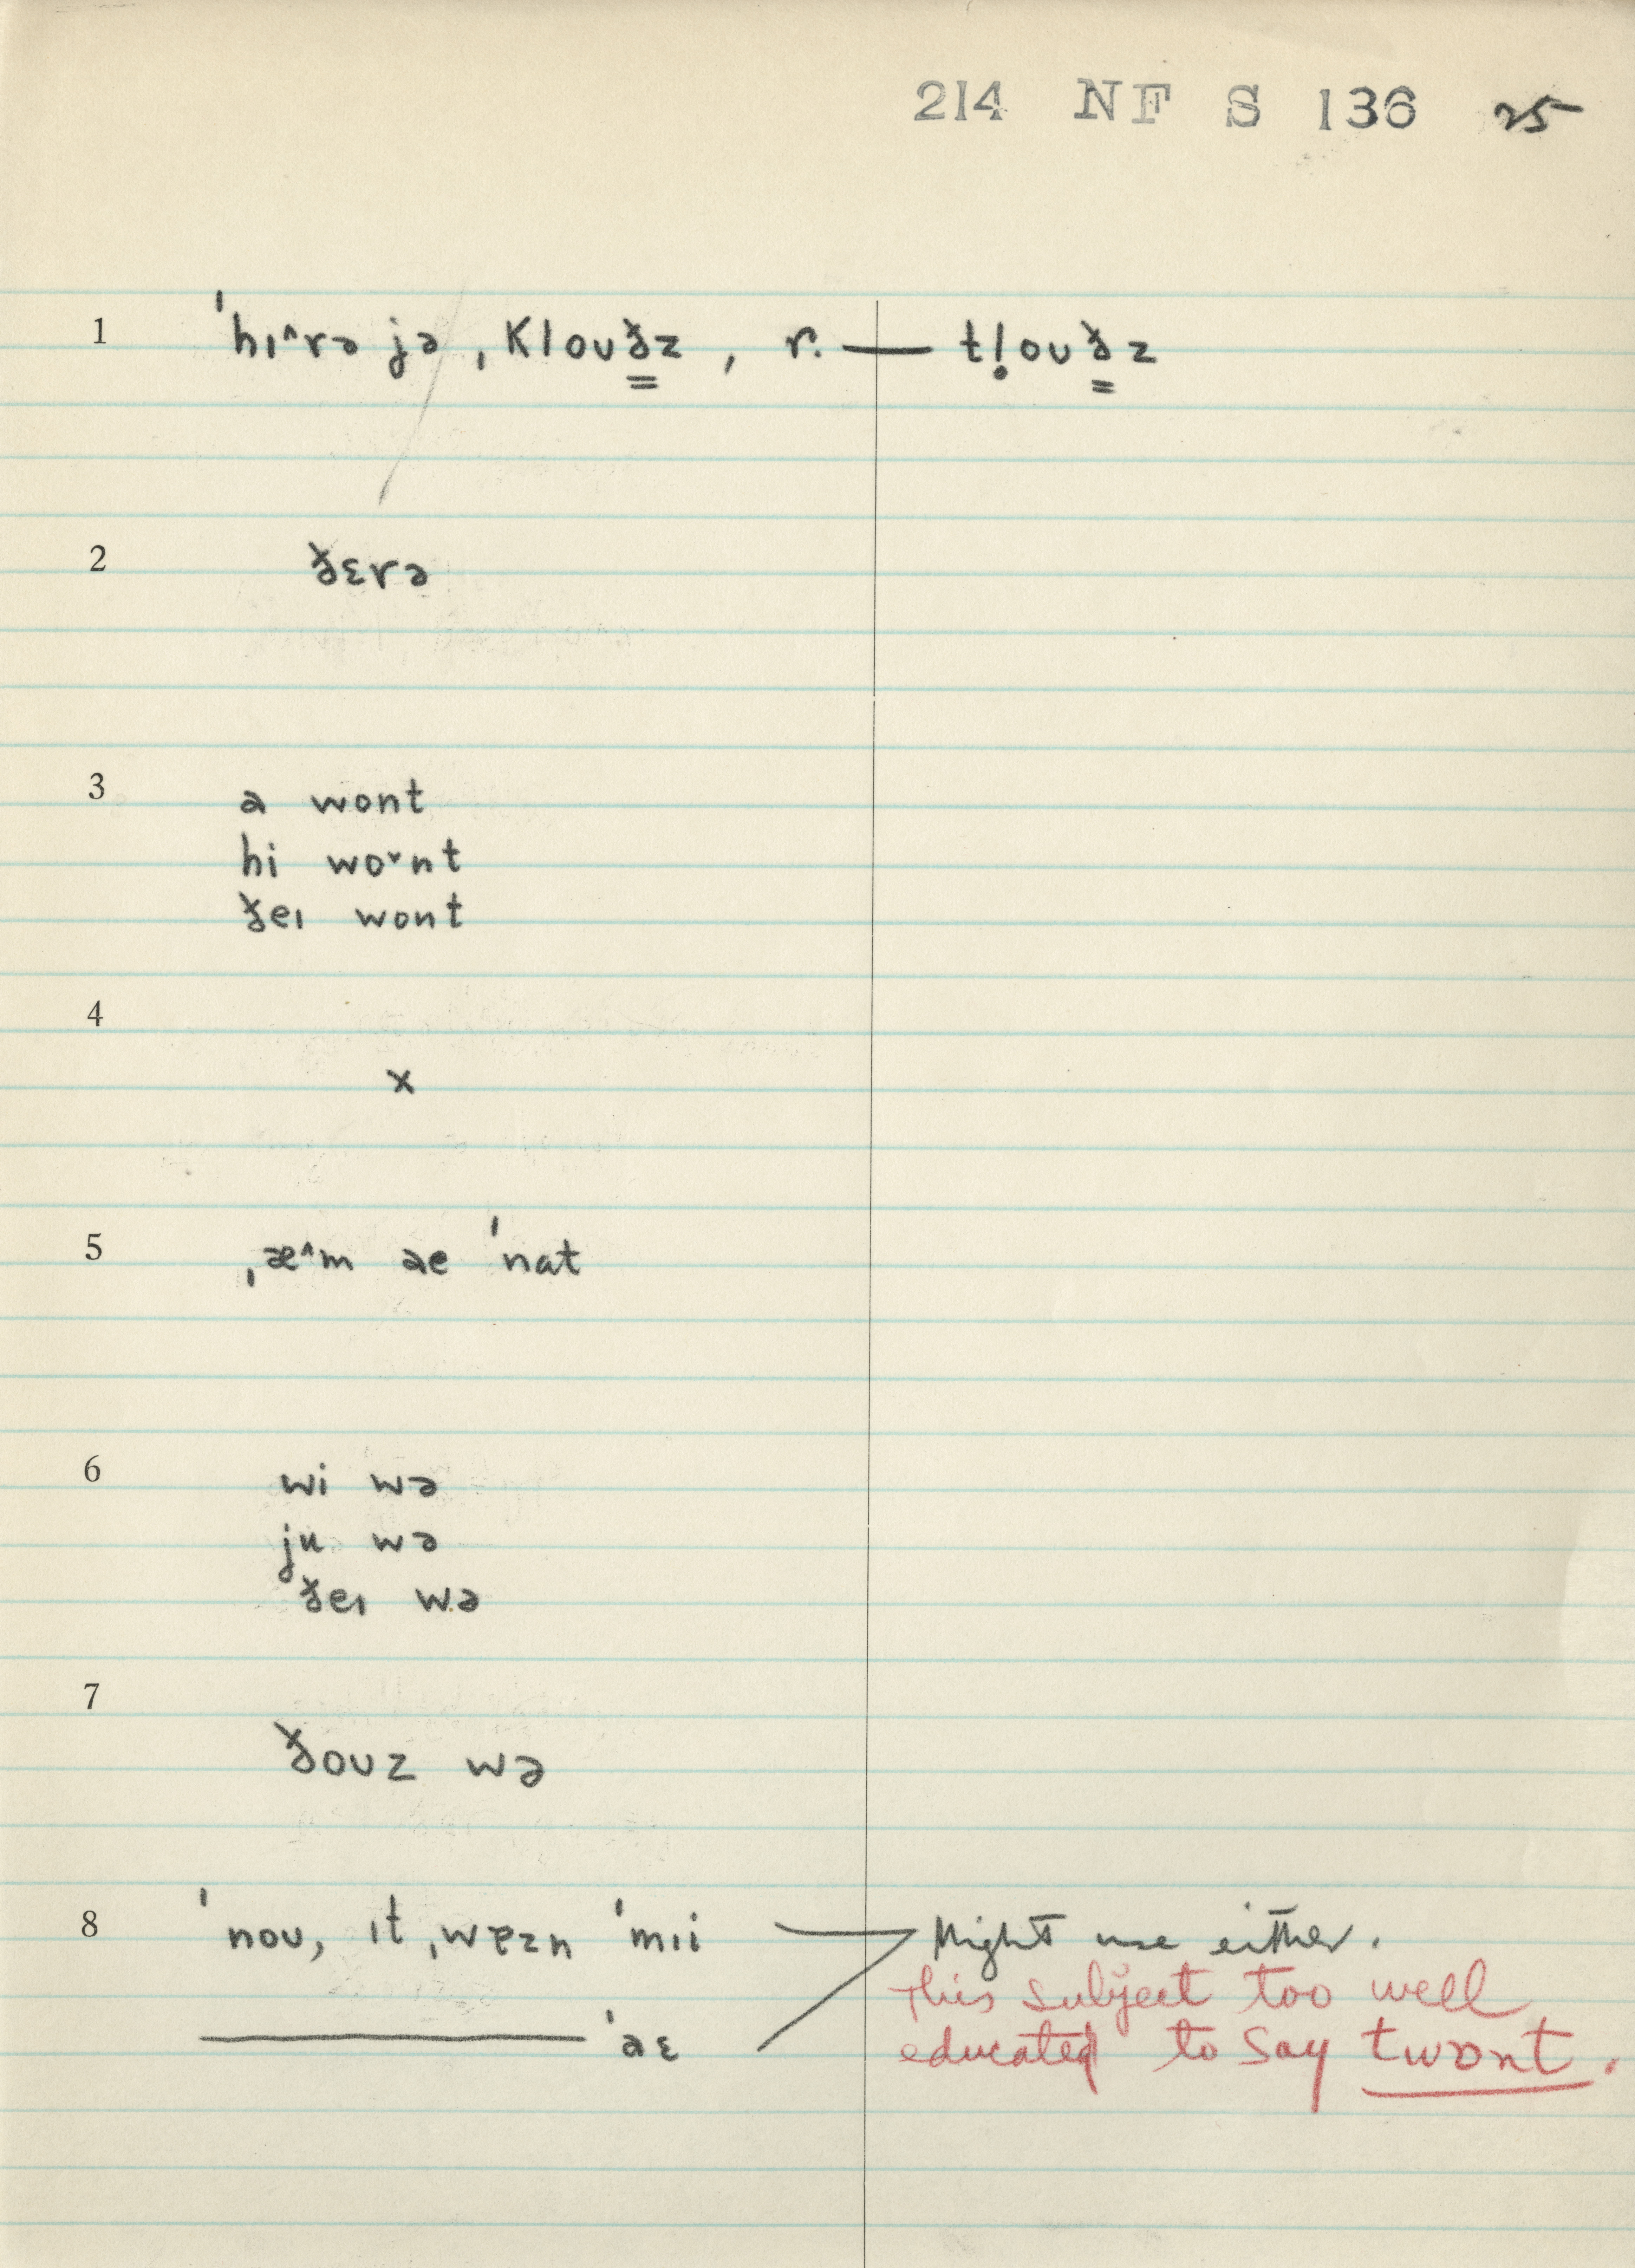 214 NF S 136 25
1 ˈhɪ^rə jə ˌklouð̳z, r. — tl̥ouð̳z
2 ðɛrə
3 ə wont
hi wo˅nt
ðeɪ wont
4
×
5 ˌæ^m əe ˈnat
6 wi wə
ju wə
ðeɪ wə
7
ðouz wə
8 ˈnou, ɪt ˌwɐzn ˈmɪi Might use either.
This subject too well
——— ˈaɛ educated to say twont.